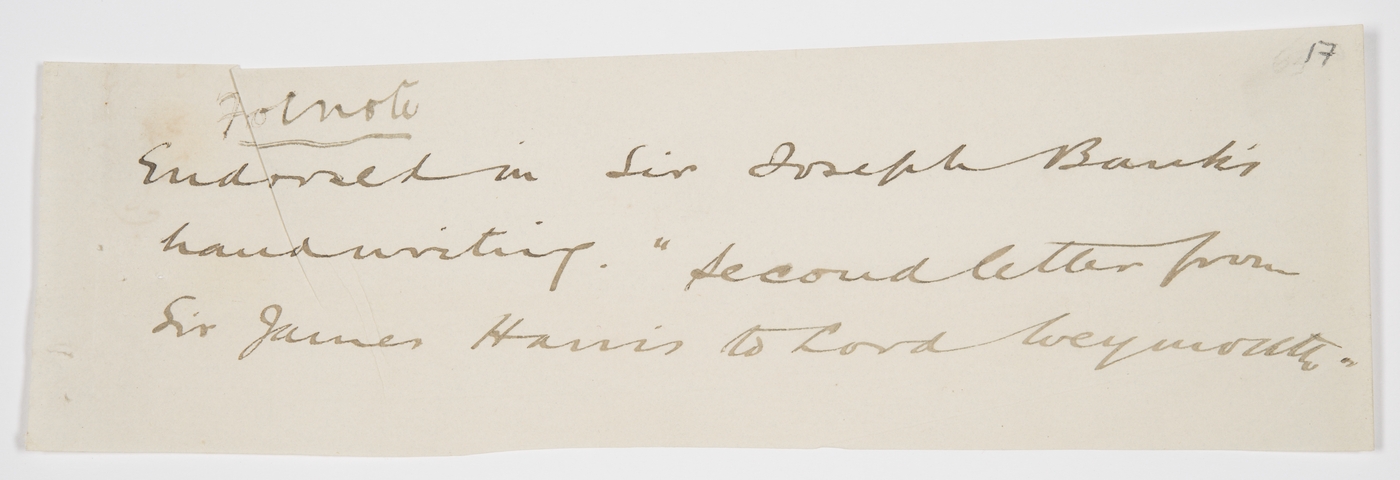 17
Footnote
Endorsed in Sir Joseph Banks
handwriting. "Second letter from
Sir James Harris to Lord Weymouth"